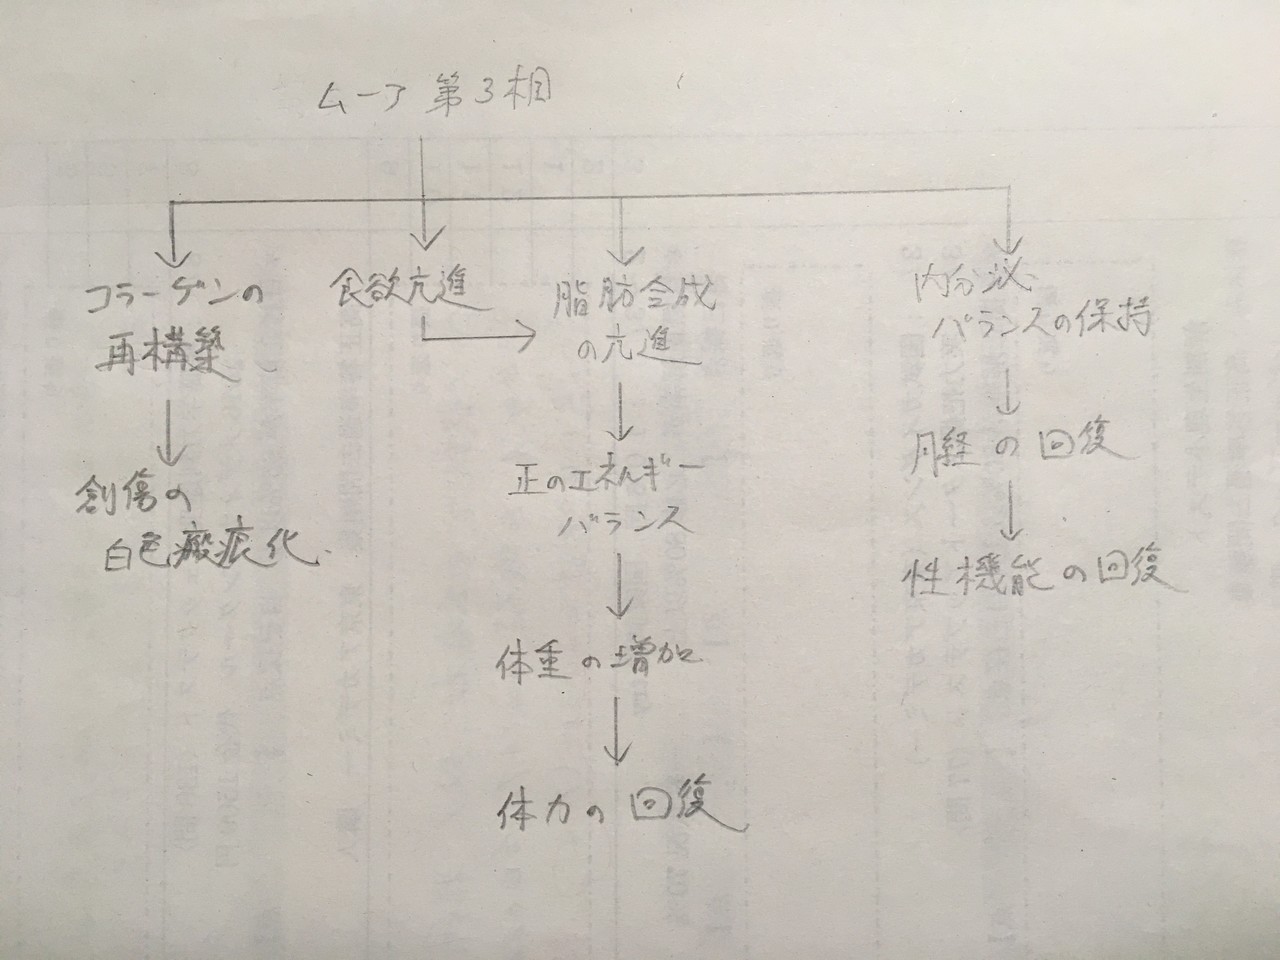 ムーア第3相
コラーゲンの
再構築
創傷の
白色瘢痕化
食欲亢進
脂肪合成
の亢進
正のエネルギー
バランス
体重の増加
体力の回復
内分泌
バランスの保持
月経の回復
性機能の回復